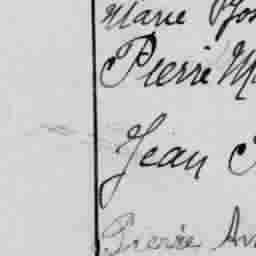 Marie Jos
Pierre M
Jean
Pierre An